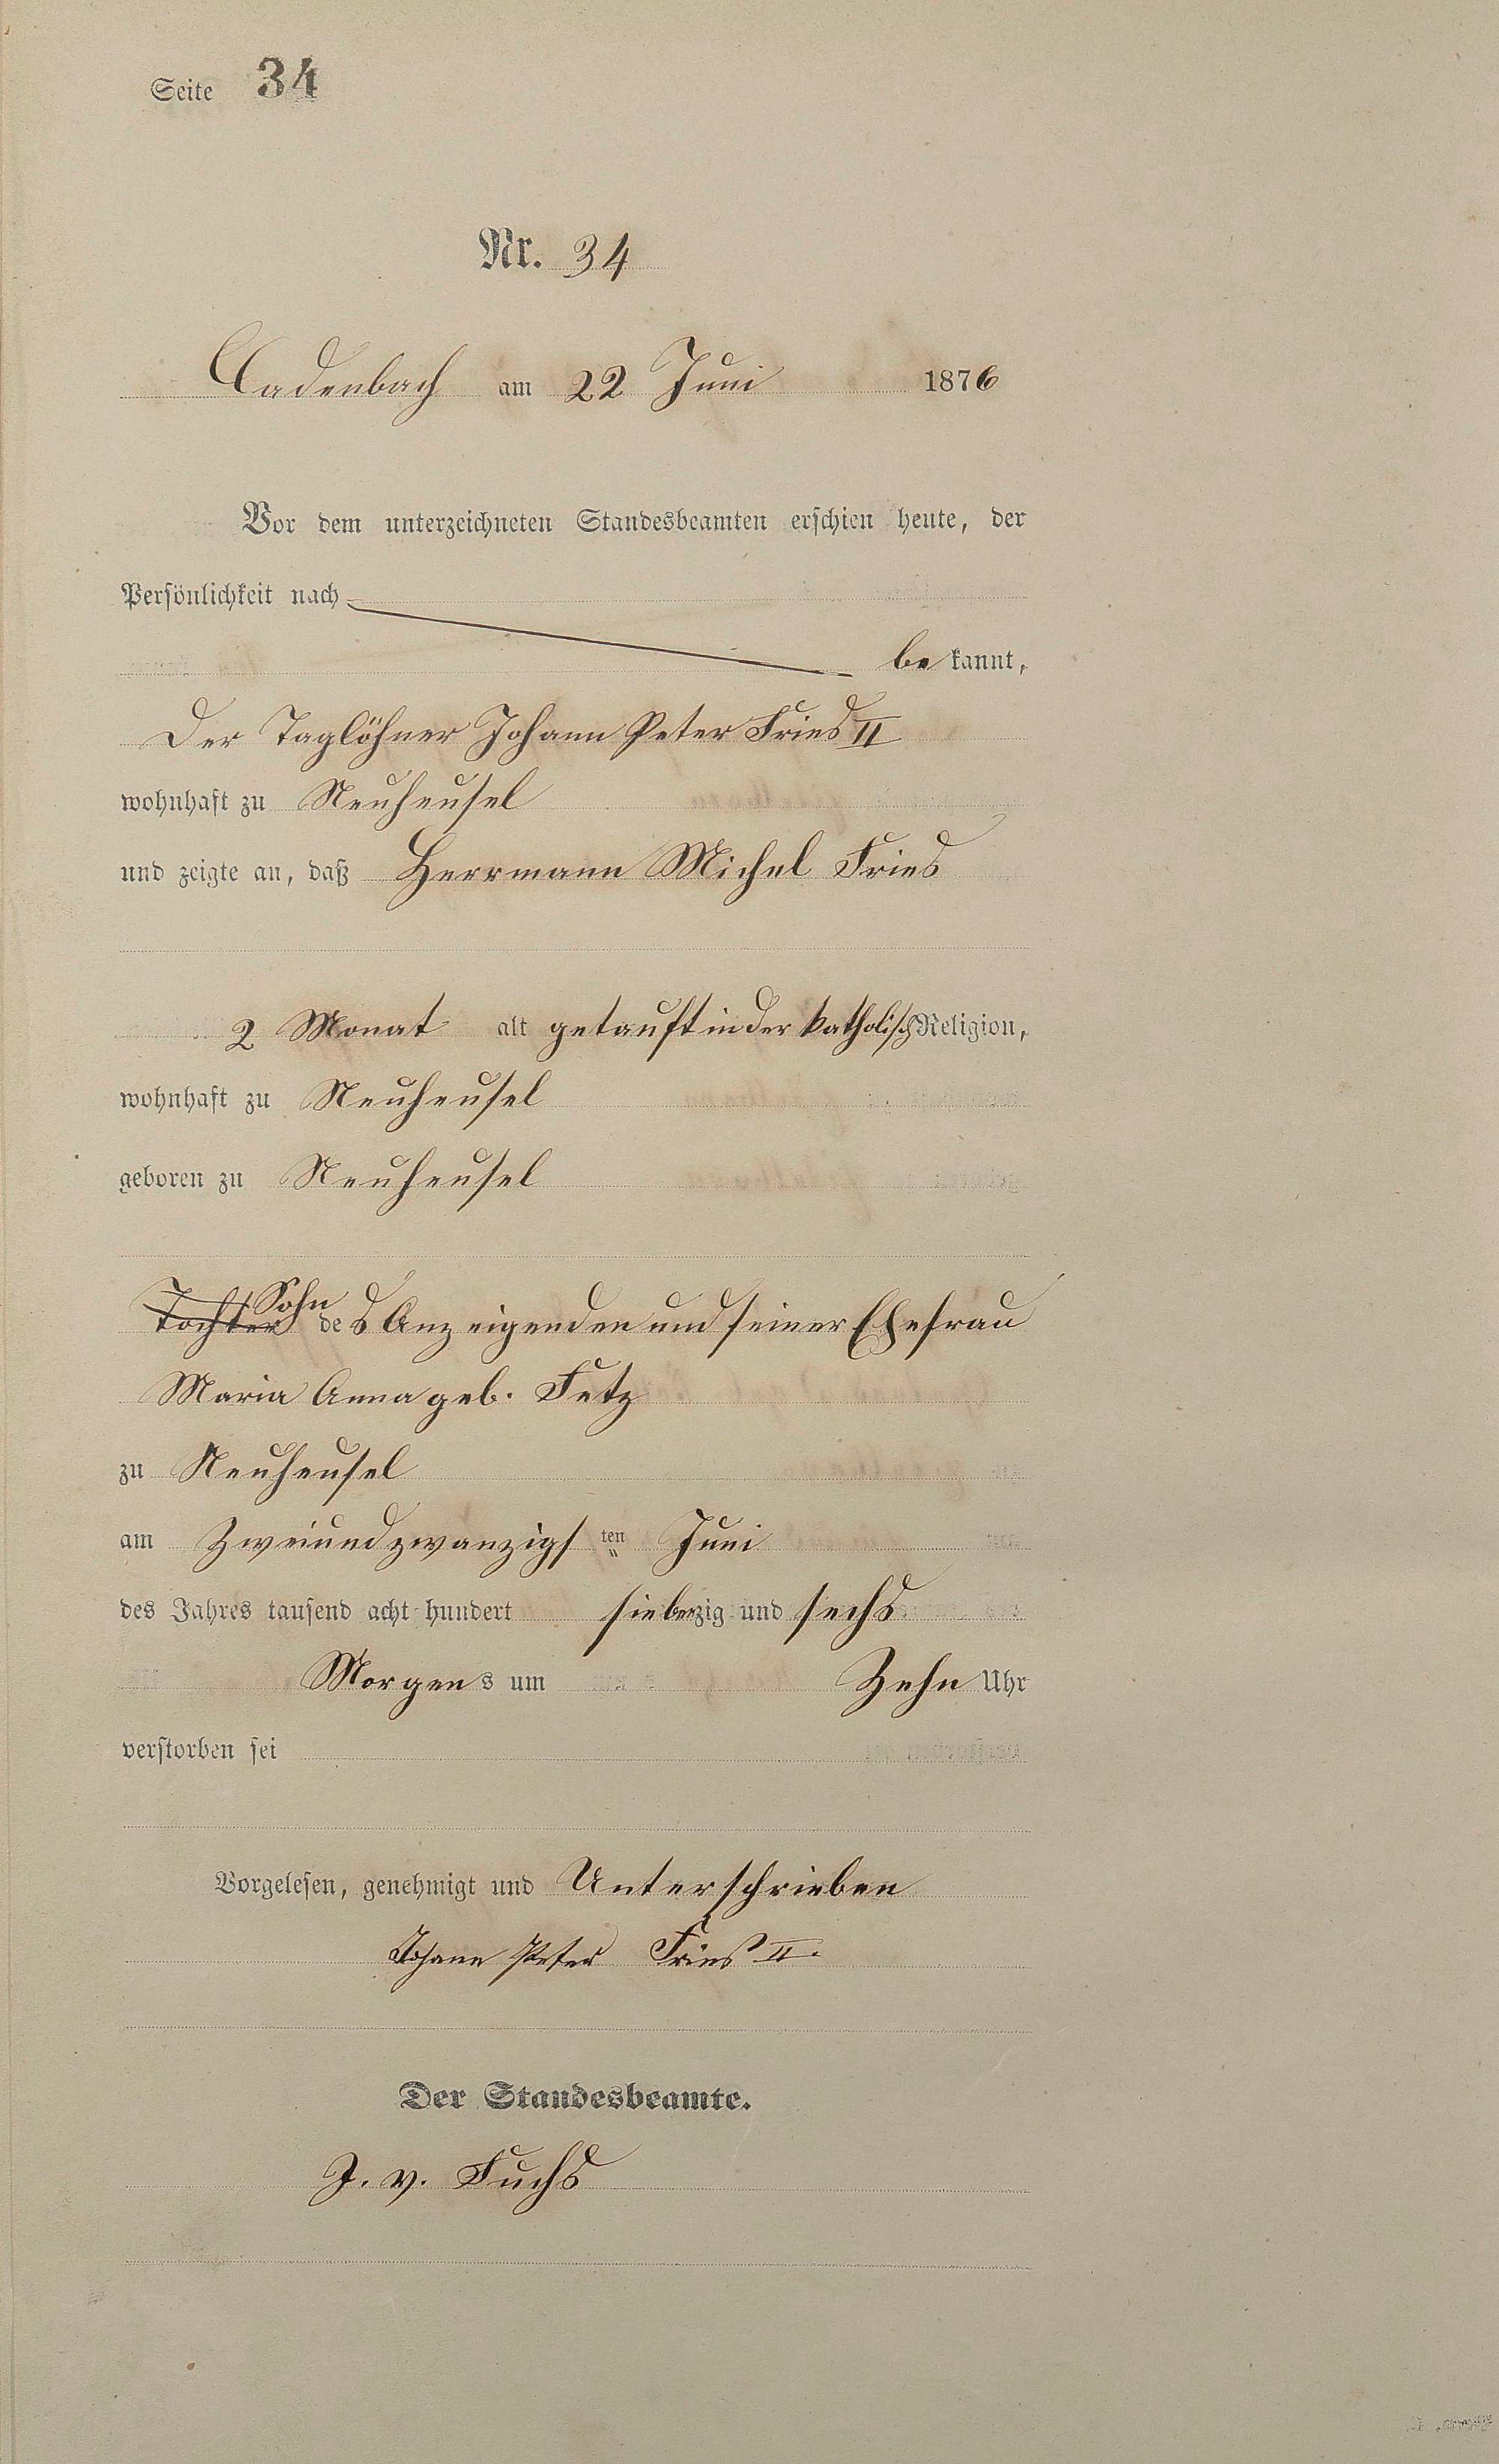 Seite 34
Nr. 34
Cadenbach am 22 Juni 1876
Vor dem unterzeichneten Standesbeamten erschien heute, der
Persönlichkeit nach
be kannt,
Der Taglöhner Johann Peter Fries II
wohnhaft zu Neuheusel
und zeigte an, daß Herrmann Michel Fries
2 Monat alt getauft in der katholisch Religion,
wohnhaft zu Neuheusel
geboren zu Neuheusel
Sohn
Tochter des Anzeigenden und seiner Ehefrau
Maria Anna geb. Fetz
zu Neuheusel
am Zweiundzwanzigs ten Juni
des Jahres tausend acht hundert siebenzig und sechs
Morgens um Zehn Uhr
verstorben sei
Vorgelesen, genehmigt und Unterschrieben
Johann Peter Fries II.
Der Standesbeamte.
J. v. Fuchs